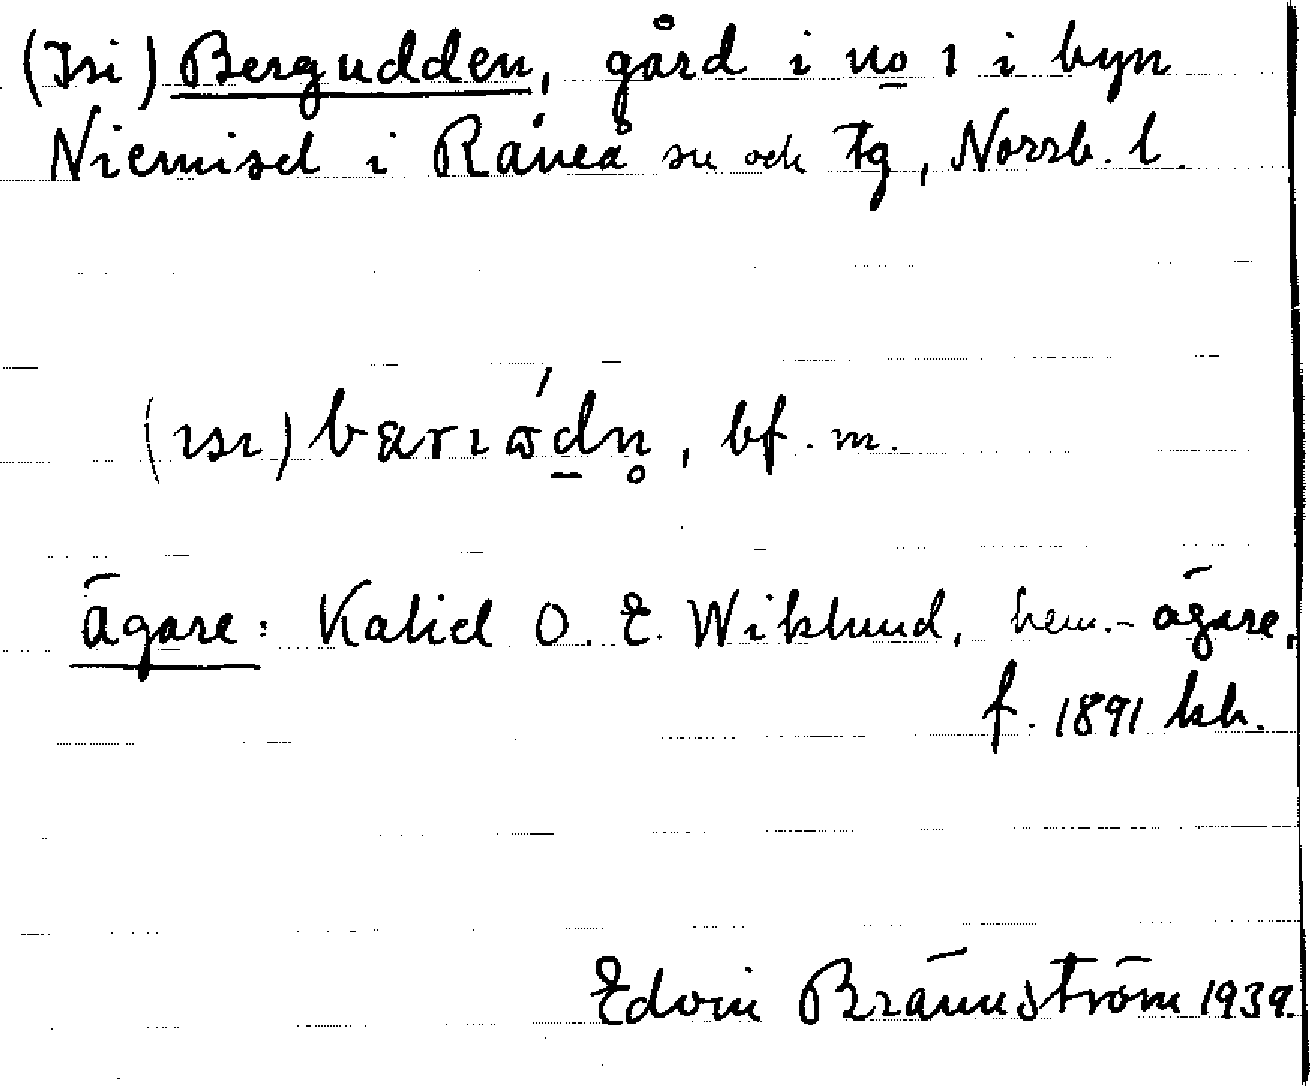 (Isi) Bergudden, gård i no 1 i byn
Niemisel i Råneå sn och tg, Norrb. l.
(ısı) bærıω̄́dn̥, bf. m.
Ägare: Kaliel O. E. Wiklund, hem.-ägare,
f. 1891 hh.
Edvin Brännström 1939.